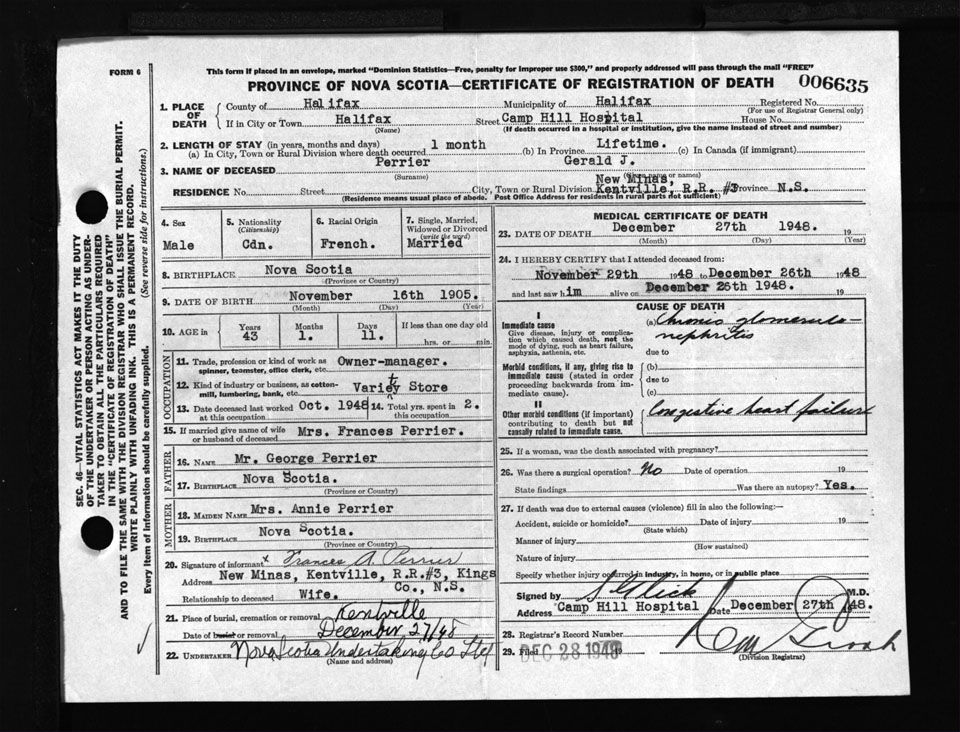 FORM 6
This form if placed in an envelope, marked "Dominion Statistics—Free, penalty for improper use $300," and properly addressed will pass through the mail "FREE"
PROVINCE OF NOVA SCOTIA—CERTIFICATE OF REGISTRATION OF DEATH
006635
SEC. 46—VITAL STATISTICS ACT MAKES IT THE DUTY
OF THE UNDERTAKER OR PERSON ACTING AS UNDER-
TAKER TO OBTAIN ALL THE PARTICULARS REQUIRED
IN THE "CERTIFICATE OF REGISTRATION OF DEATH"
AND TO FILE THE SAME WITH THE DIVISION REGISTRAR WHO SHALL ISSUE THE BURIAL PERMIT.
WRITE PLAINLY WITH UNFADING INK. THIS IS A PERMANENT RECORD.
Every item of information should be carefully supplied. (See reverse side for instructions.)
1. PLACE OF DEATH
County of Halifax Municipality of Halifax Registered No.
(For use of Registrar General only)
If in City or Town Halifax Street Camp Hill Hospital House No.
(Name) (If death occurred in a hospital or institution, give the name instead of street and number)
2. LENGTH OF STAY (in years, months and days)
(a) In City, Town or Rural Division where death occurred 1 month (b) In Province Lifetime. (c) In Canada (if immigrant)
3. NAME OF DECEASED Perrier Gerald J.
(Surname) (Given name or names)
New Minas,
RESIDENCE No. Street City, Town or Rural Division Kentville, R.R. #3 Province N.S.
(Residence means usual place of abode. Post Office Address for residents in rural parts not sufficient)
4. Sex
Male
5. Nationality
(Citizenship)
Cdn.
6. Racial Origin
French.
7. Single, Married,
Widowed or Divorced
(write the word)
Married
8. BIRTHPLACE Nova Scotia
(Province or Country)
9. DATE OF BIRTH November 16th 1905.
(Month) (Day) (Year)
10. AGE in
Years Months Days If less than one day old
43 1. 11. hrs. or min.
OCCUPATION
11. Trade, profession or kind of work as
spinner, teamster, office clerk, etc. Owner-manager.
12. Kind of industry or business, as cotton-
mill, lumbering, bank, etc. Variety Store
13. Date deceased last worked
at this occupation Oct. 1948
14. Total yrs. spent in
this occupation 2.
15. If married give name of wife
or husband of deceased Mrs. Frances Perrier.
FATHER
16. NAME Mr. George Perrier
17. BIRTHPLACE Nova Scotia.
(Province or Country)
MOTHER
18. MAIDEN NAME Mrs. Annie Perrier
19. BIRTHPLACE Nova Scotia.
(Province or Country)
20. Signature of informant x Frances A. Perrier
Address New Minas, Kentville, R.R.#3, Kings
Co., N.S.
Relationship to deceased Wife.
21. Place of burial, cremation or removal Kentville
Date of burial or removal December 27/48
22. UNDERTAKER Nova Scotia Undertaking Co Ltd
(Name and address)
MEDICAL CERTIFICATE OF DEATH
23. DATE OF DEATH December 27th 1948. 19
(Month) (Day) (Year)
24. I HEREBY CERTIFY that I attended deceased from:
November 29th 1948 to December 26th 1948
and last saw him alive on December 26th 1948. 19
CAUSE OF DEATH
I
Immediate cause
Give disease, injury or complica-
tion which caused death, not the
mode of dying, such as heart failure,
asphyxia, asthenia, etc.
(a) Chronic glomerulo-
nephritis
due to
Morbid conditions, if any, giving rise to
immediate cause (stated in order
proceeding backwards from im-
mediate cause).
(b)
due to
(c)
II
Other morbid conditions (if important)
contributing to death but not
causally related to immediate cause.
Congestive heart failure
25. If a woman, was the death associated with pregnancy?
26. Was there a surgical operation? No Date of operation 19
State findings Was there an autopsy? Yes.
27. If death was due to external causes (violence) fill in also the following:—
Accident, suicide or homicide? Date of injury 19
(State which)
Manner of injury
(How sustained)
Nature of injury
Specify whether injury occurred in industry, in home, or in public place
Signed by M.D.
Address Camp Hill Hospital Date December 27th 48.
28. Registrar's Record Number
29. Filed DEC 28 1948 19
(Division Registrar)